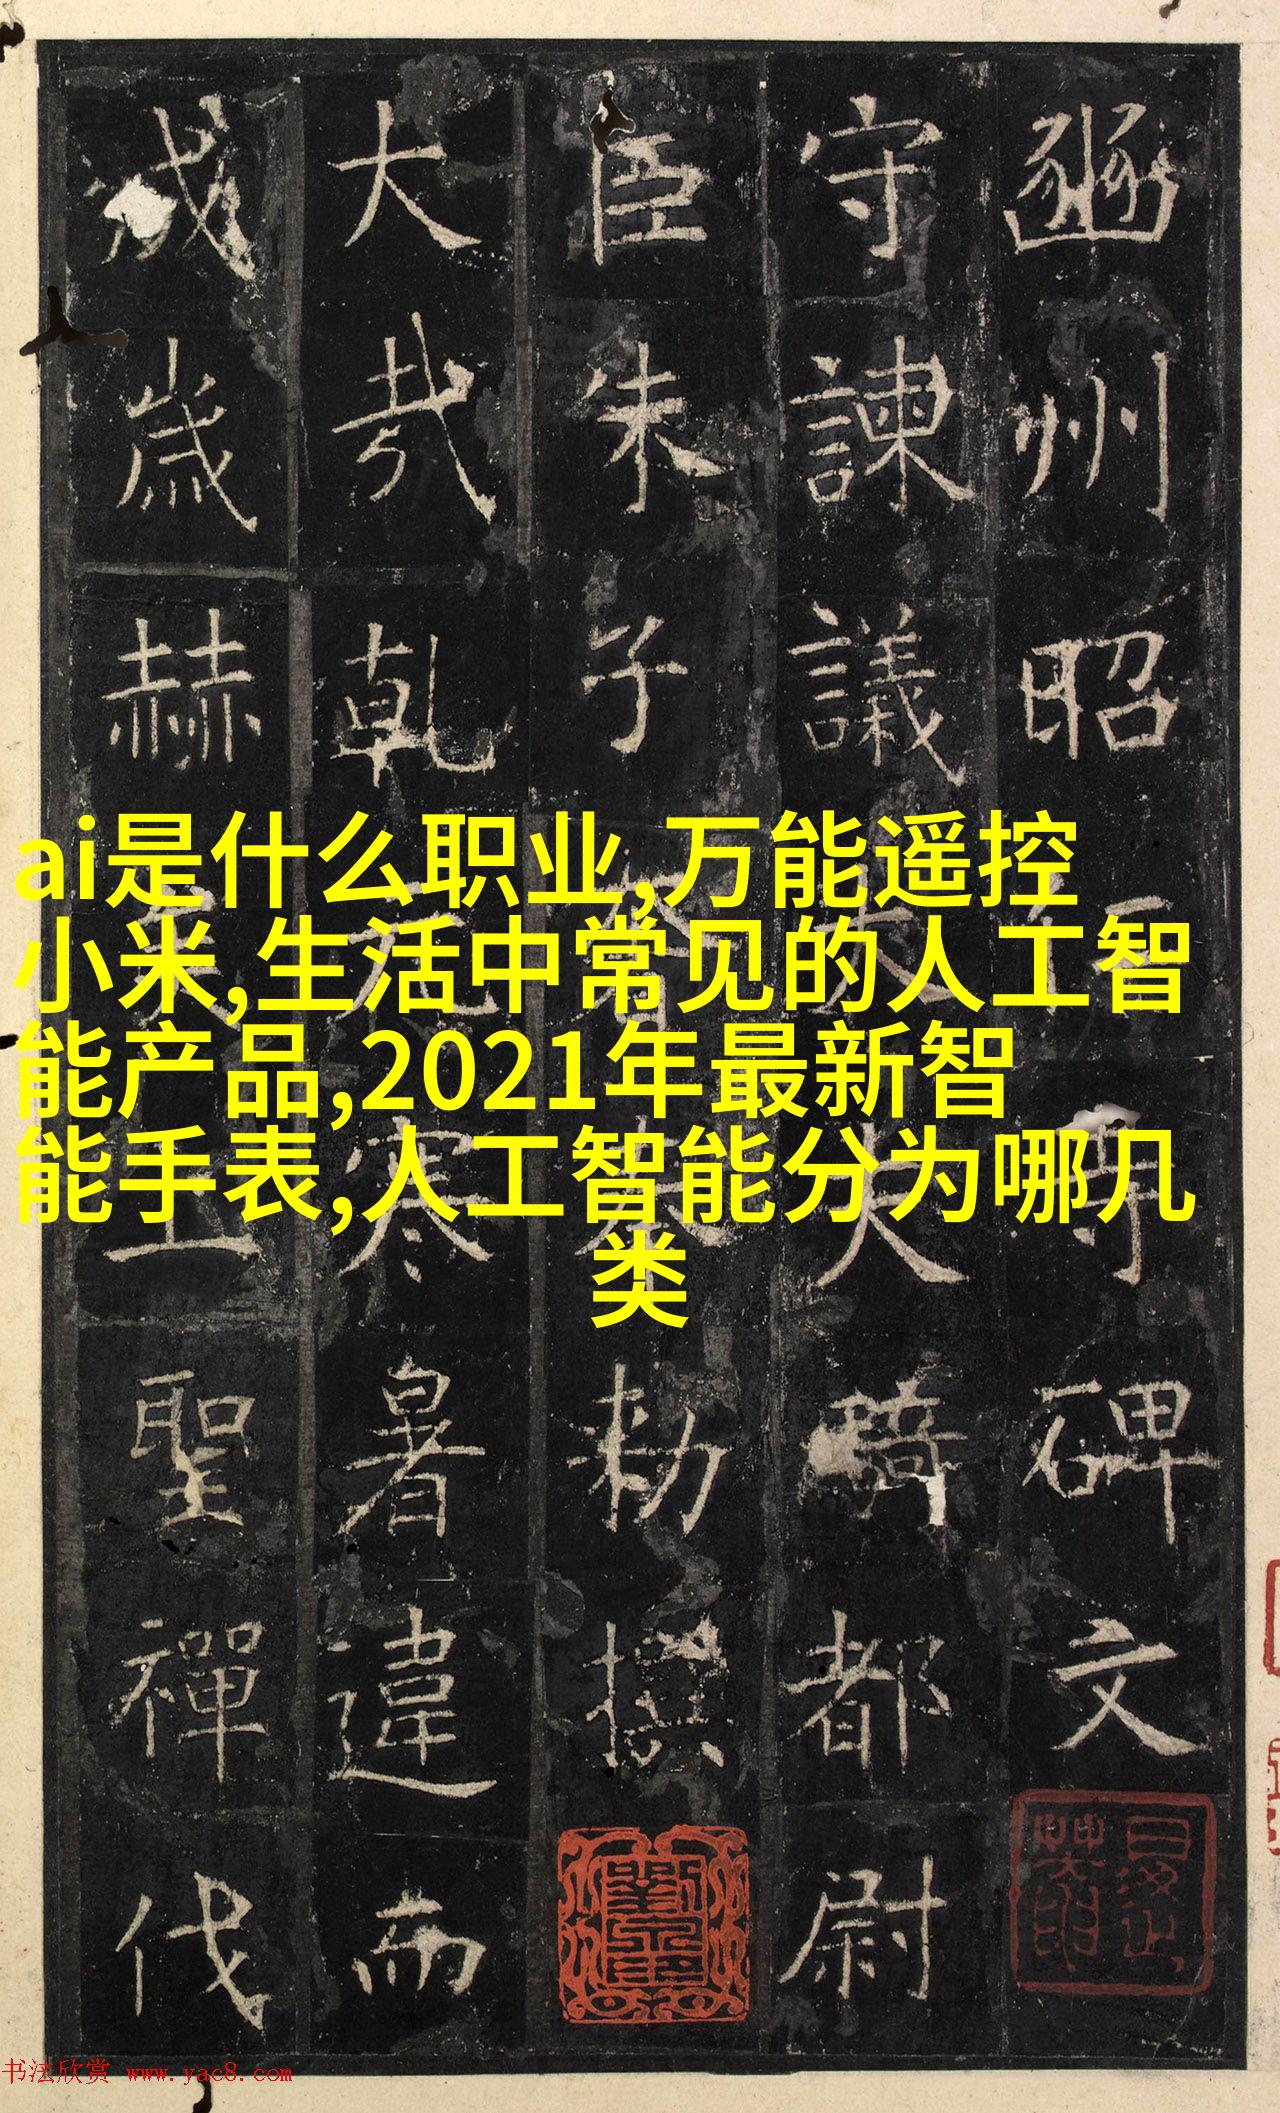 豳州昭仁寺碑文
守諫議大夫騎都尉
臣朱子奢 勅撰
大哉乾元寒暑違而
成歲赫矣 聖禪代
ai是什么职业,万能遥控
小米,生活中常见的人工智
能产品,2021年最新智
能手表,人工智能分为哪几
类
书法欣赏 www.yac8.com